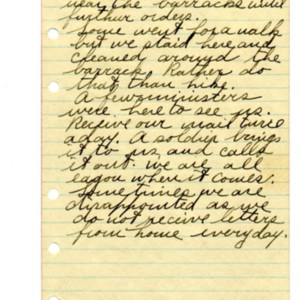 near the barracks until
further orders.
Some went for a walk
but we staid here and
cleaned around the
barrack. Rather do
that than hike.
A few ministers
were here to see us.
Receive our mail twice
a day. A soldier brings
it to us and calls
it out. We are all
eagon when it comes.
Sometimes we are
disappointed as we
do not recive letters
from home everyday.